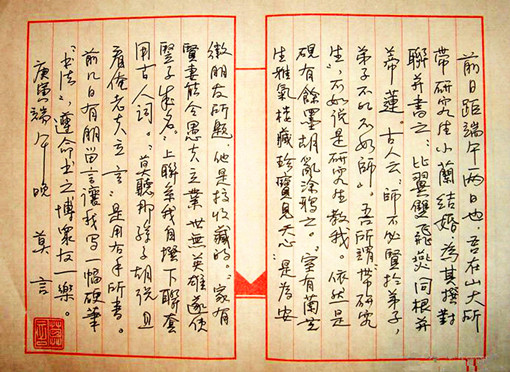 前日距端午两日也，吾在山大所
带研究生小蘭結婚，为其撰對
聯并書之：比翼雙飛燕，同根并
蒂蓮。古人云：师不必賢於弟子，
弟子不必不如師。吾所謂带研究
生，不如说是研究生教我。依然是
硯有餘墨，胡亂涂鸦之。室有蘭芝
生雅氣，楼藏珍寶見天心。是为安
徽朋友所题，他是搞收藏的。家有
賢妻能令愚夫立業，世無英雄遂使
竖子成名。上聯系我自撰，下聯套
用古人词。莫聽那孫子胡说，且
看俺老夫立言。是用左手所書。
前几日有朋留言讓我写一幅硬筆
书法，遵命书之，博衆友一樂。
庚寅端午晚 莫言